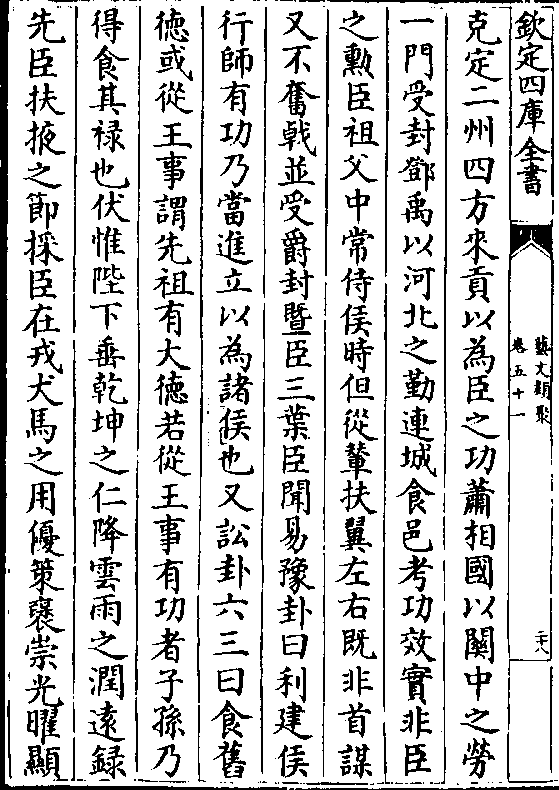 欽定四庫全書
藝文類聚
卷五十一
二十八
克定二州四方來貢以為臣之功蕭相國以關中之勞
一門受封鄧禹以河北之勤連城食邑考功效實非臣
之勲臣祖父中常侍侯時但從輦扶翼左右既非首謀
又不奮戟並受爵封暨臣三葉臣聞易豫卦曰利建侯
行師有功乃當進立以為諸侯也又訟卦六三曰食舊
德或從王事謂先祖有大德若從王事有功者子孫乃
得食其禄也伏惟陛下垂乾坤之仁降雲雨之潤遠録
先臣扶掖之節採臣在戎犬馬之用優策襃崇光曜顯